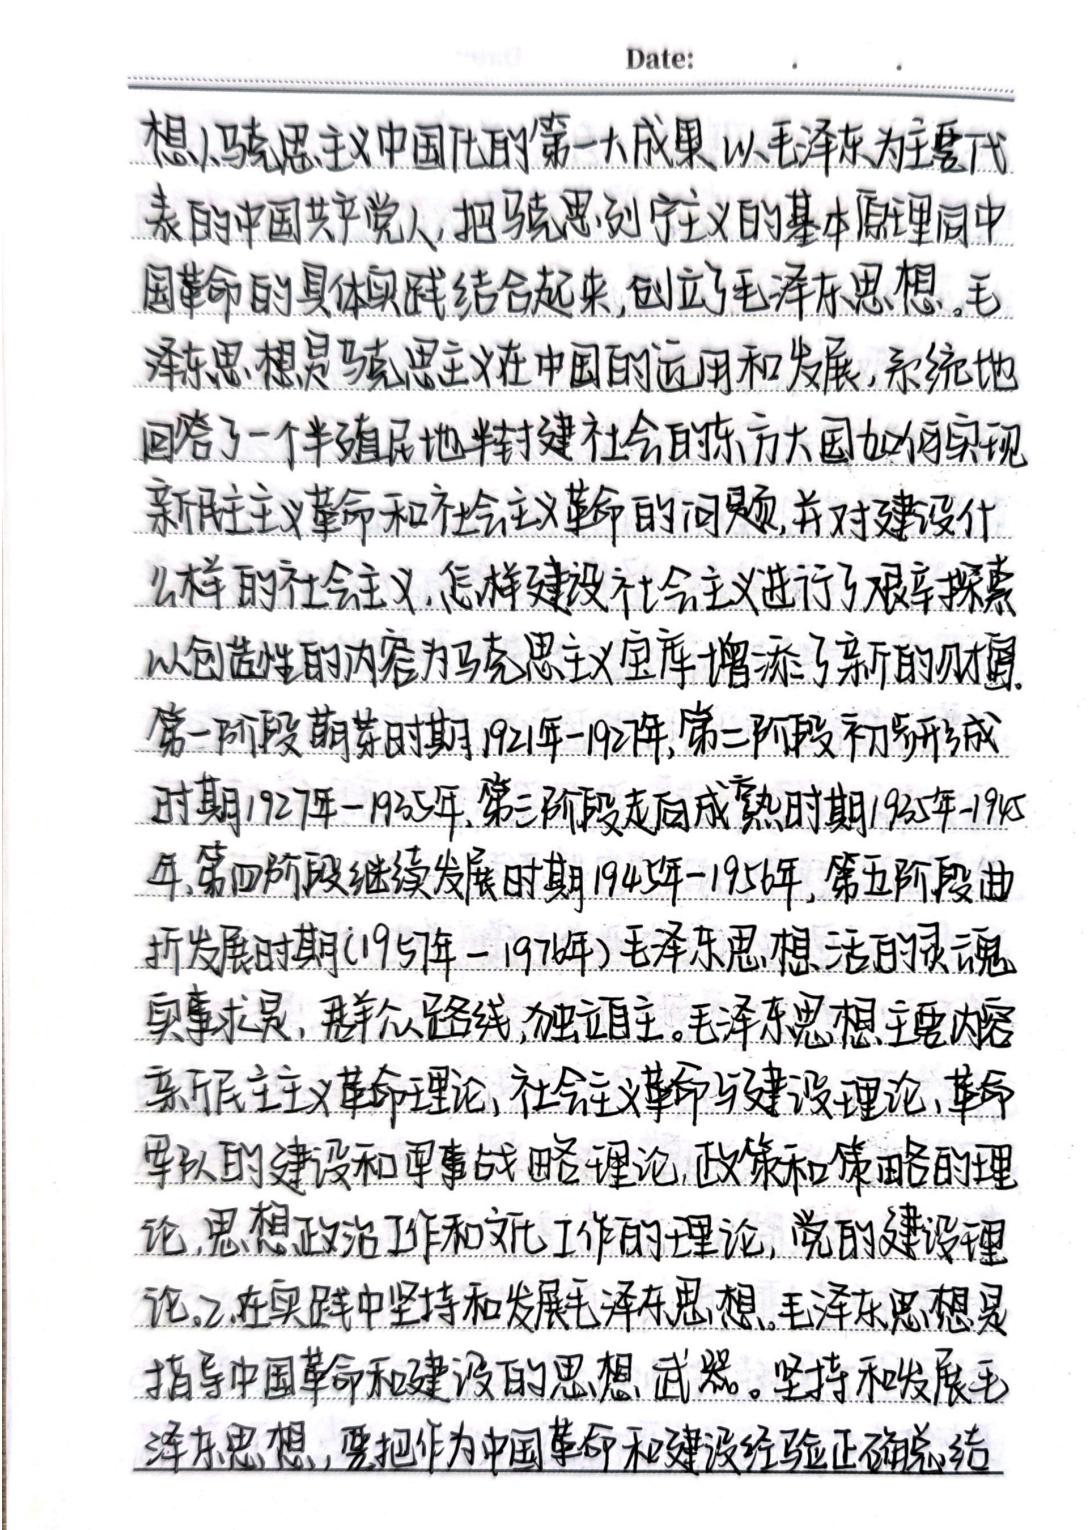 Date: . .
想1、马克思主义中国化的第一大成果、以毛泽东为主要代
表的中国共产党人,把马克思列宁主义的基本原理同中
国革命的具体实践结合起来,创立了毛泽东思想。毛
泽东思想是马克思主义在中国的运用和发展,系统地
回答了一个半殖民地半封建社会的东方大国如何实现
新民主主义革命和社会主义革命的问题,并对建设什
么样的社会主义,怎样建设社会主义进行了艰辛探索
以创造性的内容为马克思主义宝库增添了新的财富.
第一阶段萌芽时期1921年-1927年,第二阶段初步形成
时期1927年-1935年,第三阶段走向成熟时期1935年-1945
年,第四阶段继续发展时期1945年-1956年,第五阶段曲
折发展时期(1957年-1976年)毛泽东思想活的灵魂
实事求是,群众路线,独立自主。毛泽东思想主要内容
新民主主义革命理论、社会主义革命与建设理论、革命
军队的建设和军事战略理论,政策和策略的理
论,思想政治工作和文化工作的理论,党的建设理
论。2.在实践中坚持和发展毛泽东思想。毛泽东思想是
指导中国革命和建设的思想武器。坚持和发展毛
泽东思想,要把作为中国革命和建设经验正确总结